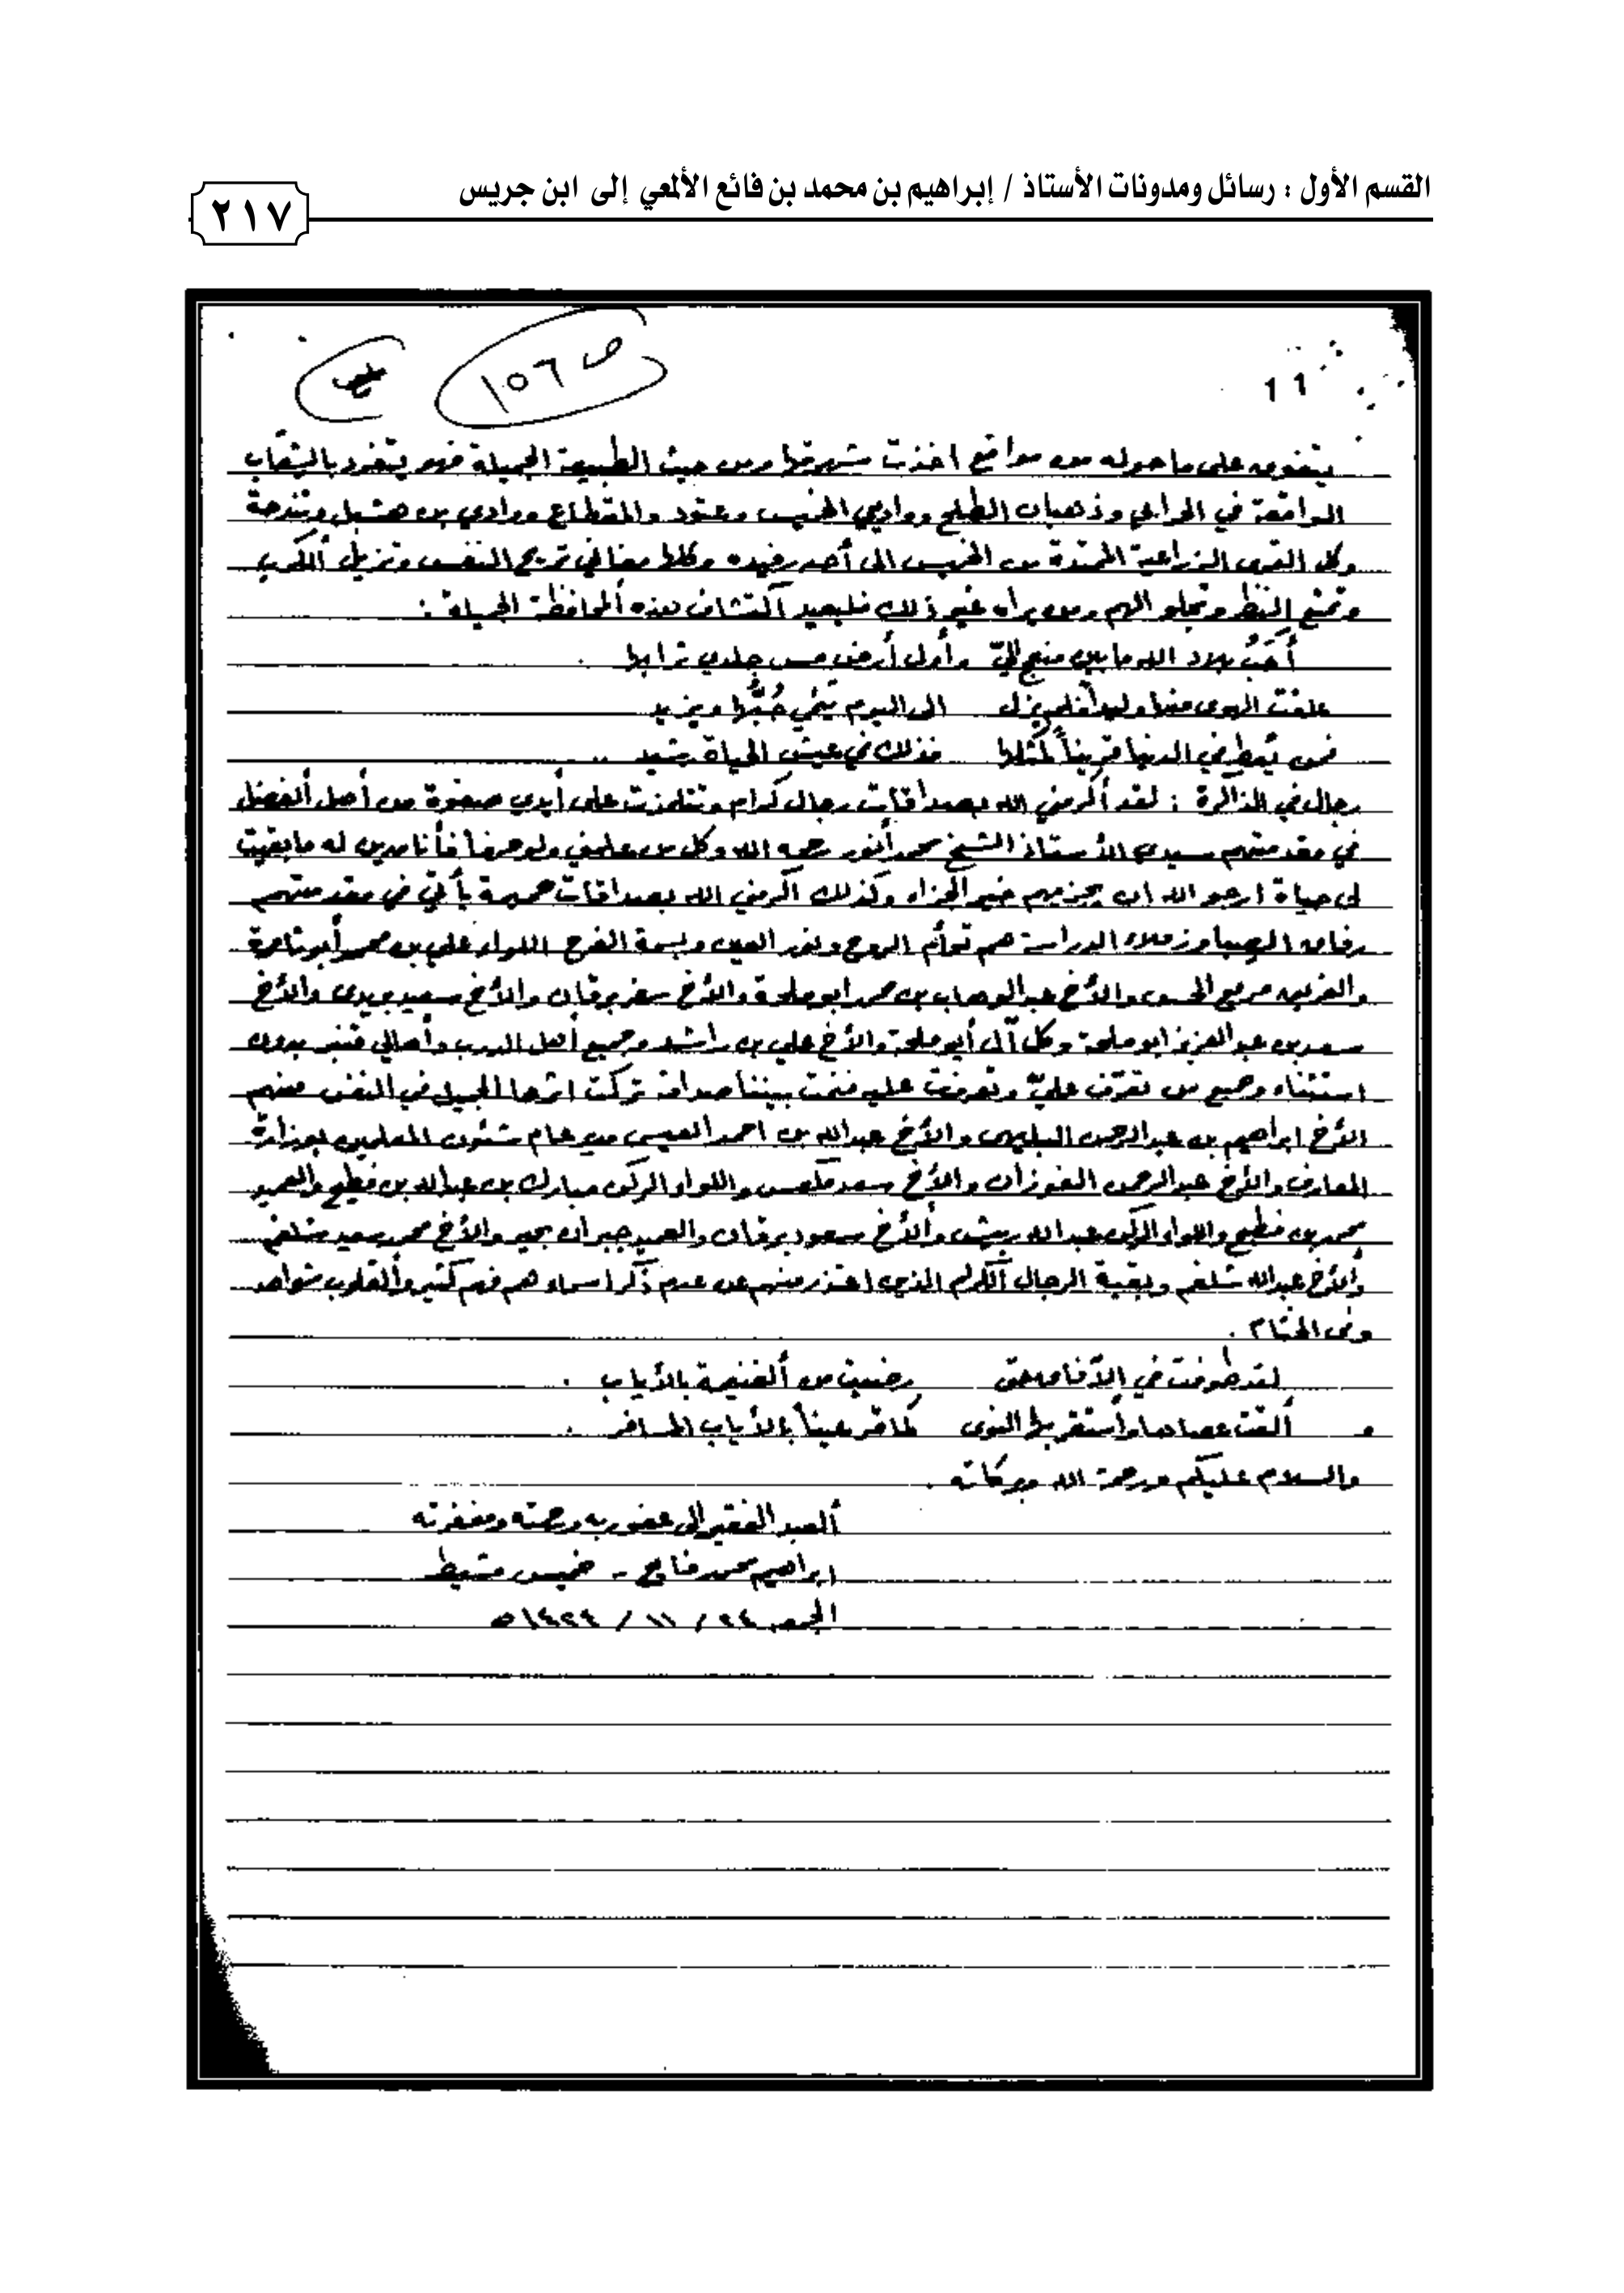 القسم الأول : رسائل ومدونات الأستاذ / إبراهيم بن محمد بن فائع الألمعي إلى ابن جريس
٢١٧
ص ١٥٦
11
يتفوق على ماحوله من مواقع اخذت شهرتها ومن حيث الطبيعة الجميلة فهو يتفرد بالشعاب
الواقعة في الحرابي وذهبان الطلح ووادي الخميس وعتود والمقطاع ووادي بن هشبل وتندحة
وكل القرى الزراعية الممتدة من الخميس الى أحد رفيده وكلها مغاني تريح النفس وتزيل الكرب
وتمتع النظر وتجلو الهم ومن يراه غير ذلك فليعيد أكتشاف هذه المحافظة الجميلة :
أحَبُ بلاد الله مابين منعج إليّ وأول أرض مس جلدي ترابها
علقت الهوى منها وليداً فلم يزل الى اليوم ينمي حُبُّها ويزيد
فمن يُعط في الدنيا قريناً كمثلها فذلك في عيش الحياة رشيد ..
رجال في الذاكرة : لقد أكرمني الله بصداقات رجال كرام وتتلمذت على أيدي صفوة من أهل ألفضل
في مقدمتهم سيدي الأستاذ الشيخ محمد أنور رحمه الله وكل من علمني ولو حرفاً فأنا مدين له مابقيت
لى حياة ارجو الله ان يجزيهم خير الجزاء وكذلك اكرمني الله بصداقات حميمة يأتي في مقدمتهم
رفاق الصبا وزملاء الدراسة هم توأم الروح ونور العين وبسمة الفرح اللواء علي بن محمد أبو
والفريق مريع الحسن والأخ عبدالوهاب بن محمد ابوملحة والأخ سفر برقان والأخ سعيد بويدى والأخ
سعد بن عبدالعزيز ابوملحة وكل آل أبو ملحة والأخ علي بن راشد وجميع اهل الدرب وأهالي قنبر بدون
استثناء وجميع من تعرّف عليّ وتعرفت عليه فنمت بيننا صداقة تركت اثرها الجميل في النفس منهم
الأخ ابراهيم بن عبدالرحمن البليهي والأخ عبدالله بن احمد العيسى مدير عام شئون المعلمين بوزارة
المعارف والأخ عبدالرحمن الفوزان والأخ سعد ملعس واللواء الركن مبارك بن عبدالله بن فطيح والعميد
محمد بن فطيح واللواء الركن عبدالله ريش وألأخ سعود برقان والعميد جبران بجير والأخ محمد سعيد شلغم
وألأخ عبدالله شلغم وبقية الرجال ألكرام الذين اعتذر منهم عن عدم ذكر اسماءهم فهم كثير وألقلوب شواهد
وفى الختام .
لقد طوفت في الآفاق حتى رضيت من ألغنيمة بالأياب .
و ألقت عصاها وأستقر بها النوى كما قر عيناً بالأياب المسافر .
والسلام عليكم ورحمة الله وبركاته .
ألعبد الفقير إلى عفو ربه ورحمته ومغفرته
ابراهيم محمد فايع - خميس مشيط
الجمعه ٢٤ / ١١ / ١٤٢٩ ه